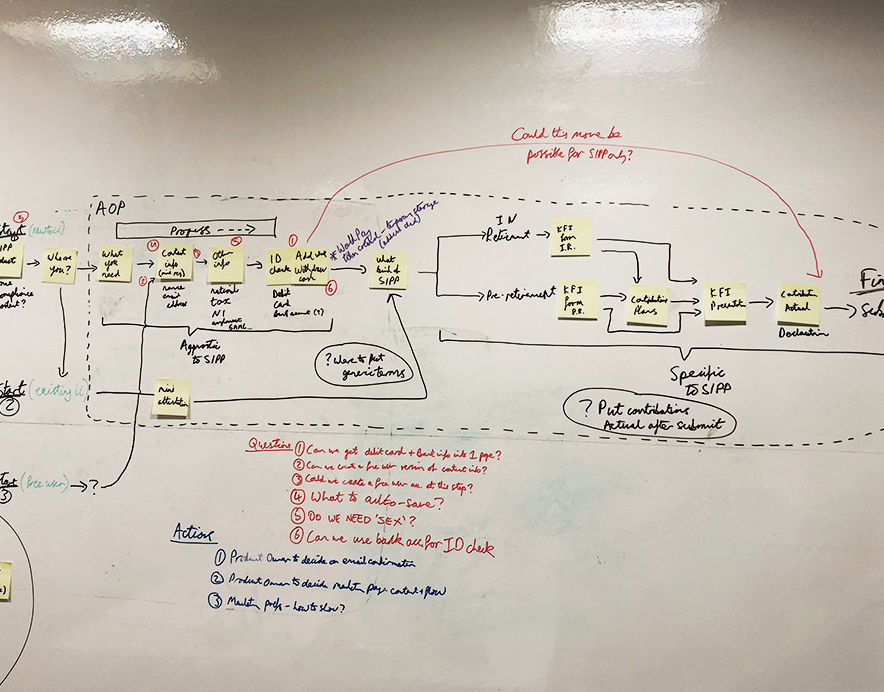 Could this move be
possible for SIPP only?
AOP
Progress
(new to ii)
Who are
you?
What
you
need
④
Contact
info
name
email
address
⑤
Other
info
national
tax
NI
employment
①
ID
check
Debit
card
Bank account (?)
⑥
* World Pay
What
kind of
SIPP
IN
Retirement
KFI
from
I.R.
Pre-retirement
KFI
from
P.R.
Contribution
Plans
KFI
Presented
Contribution
Actual
Declaration
Agnostic
to SIPP
? Where to put
generic terms
Specific
TO SIPP
? Put contributions
Actual after submit
Start (existing ii)
②
mini
attestation
Start (free user) → ?
③
Questions ① Can we get debit card + Bank info into 1 page?
② Can we create a free user version of contact info?
③ Could we create a free user acc at this step?
④ What to auto-save?
⑤ DO WE NEED 'SEX'?
⑥ Can we use bank acc for ID check
Actions
① Product Owner to decide on email confirmation
② Product Owner to decide page content + flow
③ prefs - how to show?